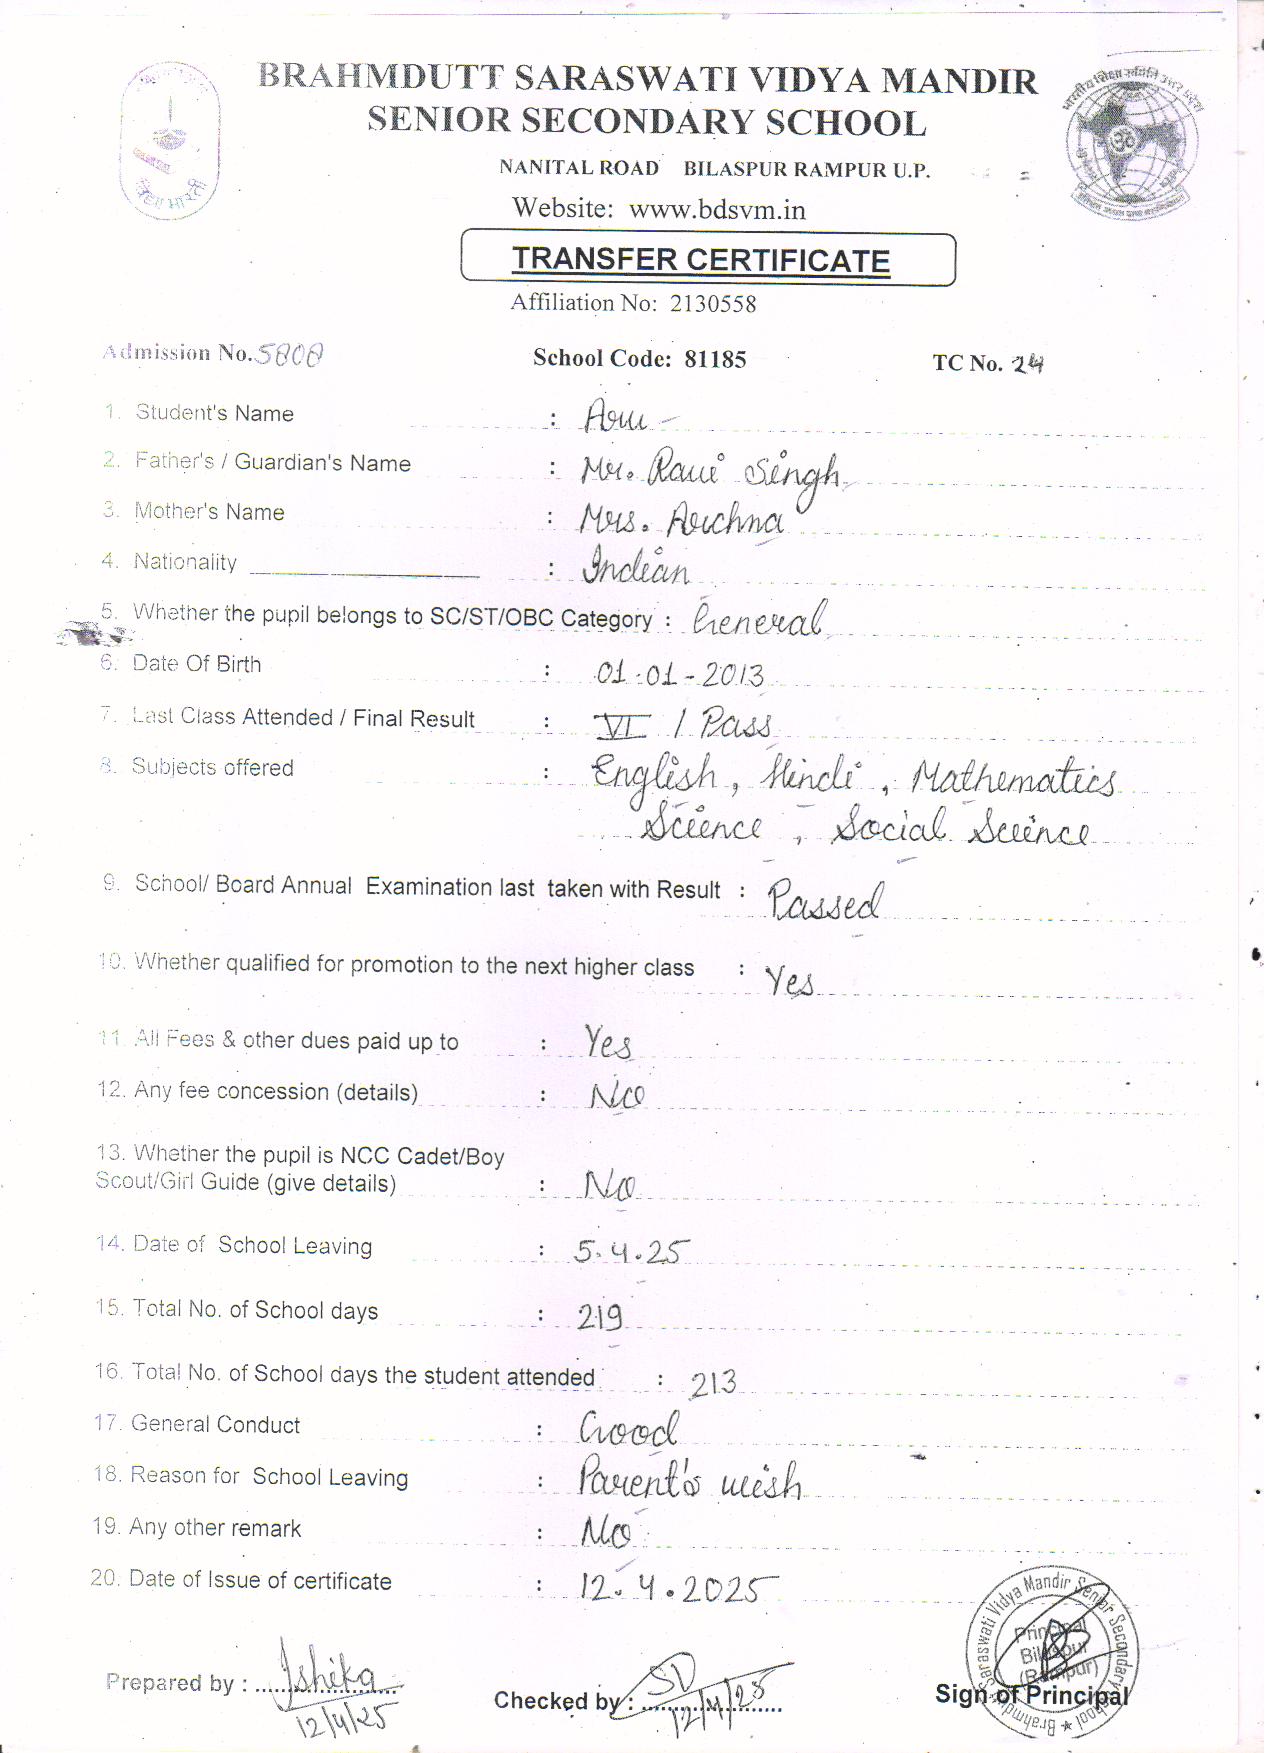 BRAHMDUTT SARASWATI VIDYA MANDIR
SENIOR SECONDARY SCHOOL
NANITAL ROAD BILASPUR RAMPUR U.P.
Website: www.bdsvm.in
TRANSFER CERTIFICATE
Affiliation No: 2130558
Admission No. 5808 School Code: 81185 TC No. 24
1. Student's Name : Aru
2. Father's / Guardian's Name : Mr. Ravi Singh
3. Mother's Name : Mrs. Archna
4. Nationality : Indian
5. Whether the pupil belongs to SC/ST/OBC Category : General
6. Date Of Birth : 01-01-2013
7. Last Class Attended / Final Result : VI / Pass
8. Subjects offered : English, Hindi, Mathematics
Science, Social Science
9. School/ Board Annual Examination last taken with Result : Passed
10. Whether qualified for promotion to the next higher class : Yes
11. All Fees & other dues paid up to : Yes
12. Any fee concession (details) : No
13. Whether the pupil is NCC Cadet/Boy
Scout/Girl Guide (give details) : No
14. Date of School Leaving : 5.4.25
15. Total No. of School days : 219
16. Total No. of School days the student attended : 213
17. General Conduct : Good
18. Reason for School Leaving : Parent's wish
19. Any other remark : No
20. Date of Issue of certificate : 12.4.2025
Prepared by : Ishika
12/4/25
Checked by : SD
12/4/25
Sign of Principal
Saraswati Vidya Mandir Senior Secondary School ★ Brahmdutt
Principal
Bilaspur
(Rampur)